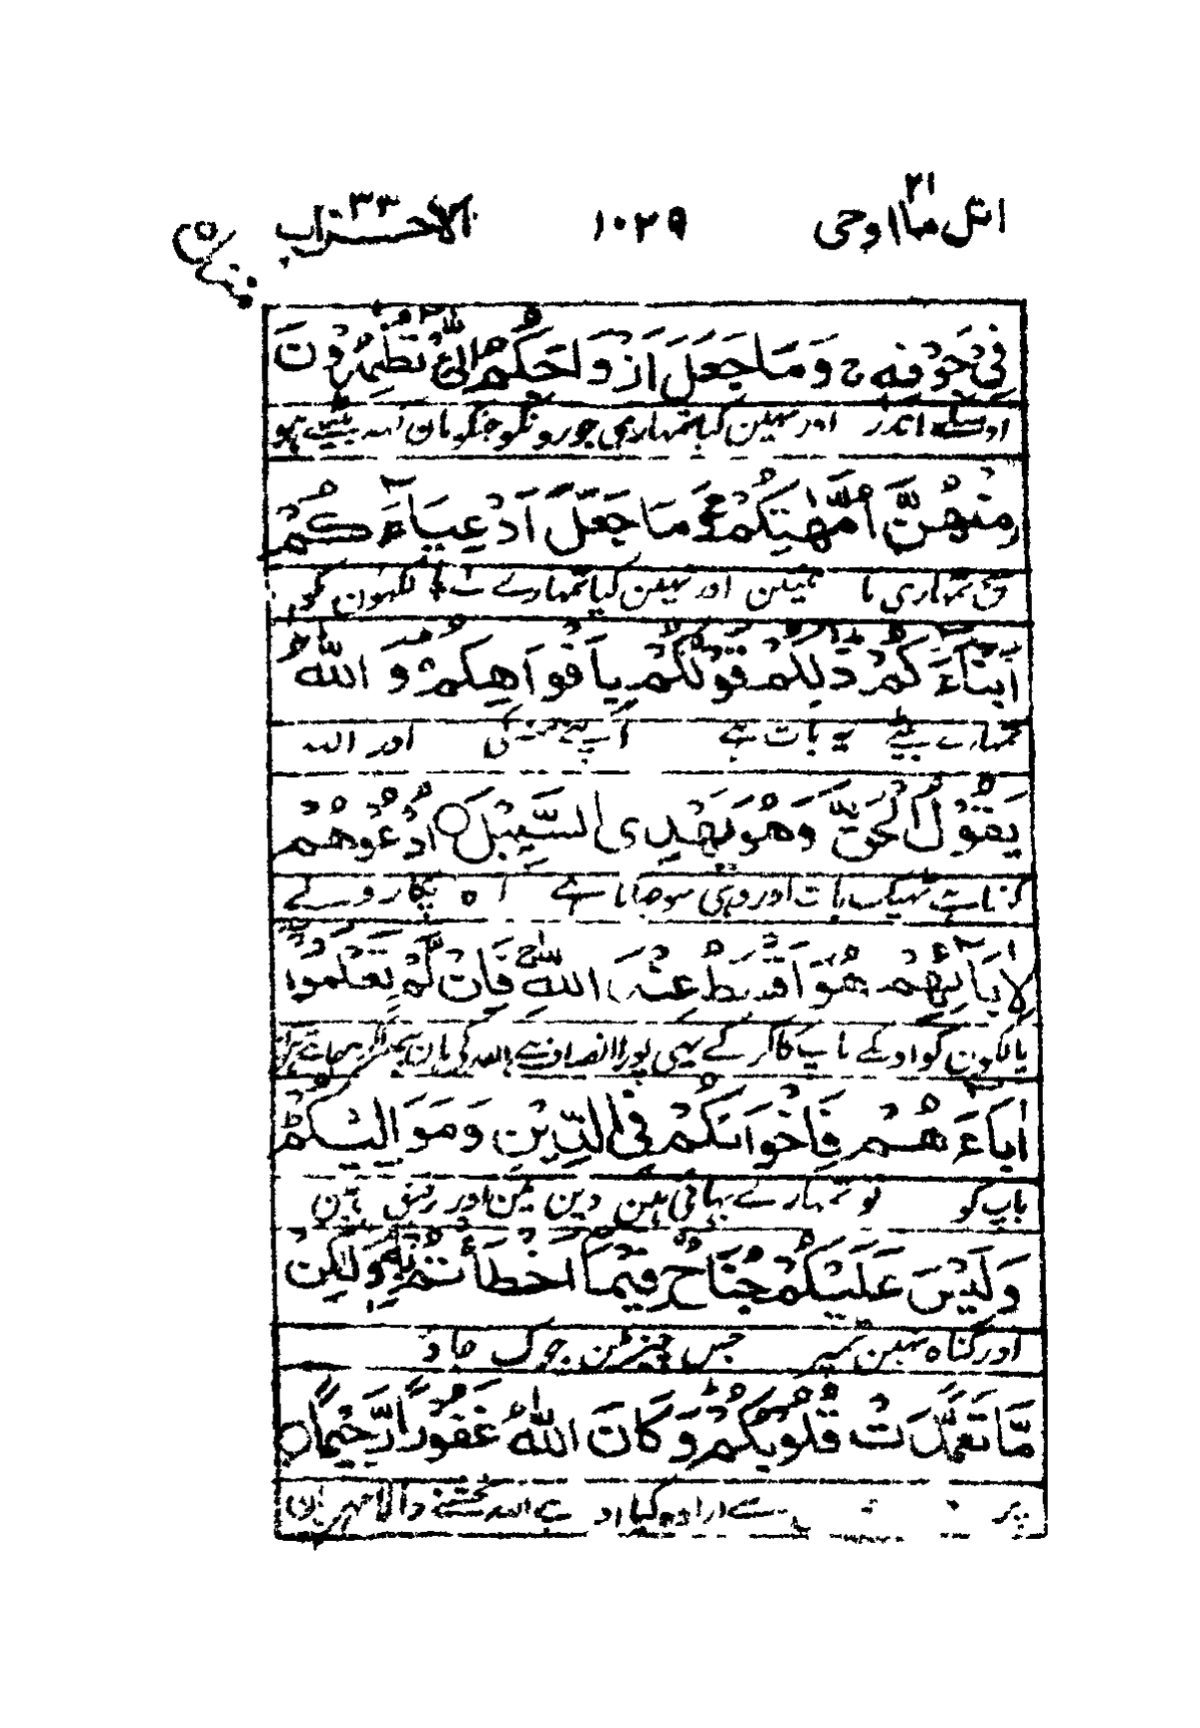 اتل ما اوحی ۲۱ ۱۰۲۹ الاحزاب ۳۳
فِیْ جَوْفِهٖ ج وَمَا جَعَلَ اَزْوَاجَكُمُ الّٰٓئِیْ تُظٰهِرُوْنَ
اوسکے اندر اور نہین کیا تمہاری جورونکو جنکو مان کہہ بیٹھے ہو
مِنْهُنَّ اُمَّهٰتِكُمْ ج وَمَا جَعَلَ اَدْعِیَآءَكُمْ
تمہاری ما اور نہین کیا تمہارے کو
اَبْنَآءَكُمْ ذٰلِكُمْ قَوْلُكُمْ بِاَفْوَاهِكُمْ وَاللّٰهُ
تمہارے بیٹے یہ بات ہے اپنے کی اور اللہ
یَقُوْلُ الْحَقَّ وَهُوَ یَهْدِی السَّبِیْلَ ○ اُدْعُوْهُمْ
کہتا ہے ٹہیک بات اور وہی سوجہاتا ہے راہ ہ پکارو لے
لِاٰبَآئِهِمْ هُوَ اَقْسَطُ عِنْدَ اللّٰهِ ج فَاِنْ لَّمْ تَعْلَمُوْا
پالکون کو اونکے باپ کا کر کے یہی پورا انصاف ہے اللہ کی ہان پہر اگر نجانتے ہو
اٰبَآءَهُمْ فَاِخْوَانُكُمْ فِی الدِّیْنِ وَمَوَالِیْكُمْ
باپ کو تو تمہارے بہائی ہین دین مین اور رفیق ہین
وَلَیْسَ عَلَیْكُمْ جُنَاحٌ فِیْمَآ اَخْطَاْتُمْ بِهٖ وَلٰكِنْ
اور گناہ نہین تمپر جس چیز مین چوک جاؤ
مَّا تَعَمَّدَتْ قُلُوْبُكُمْ وَكَانَ اللّٰهُ غَفُوْرًا رَّحِیْمًا ○
پر سے ارادہ کیا اور ہے اللہ بخشنے والا مہربان